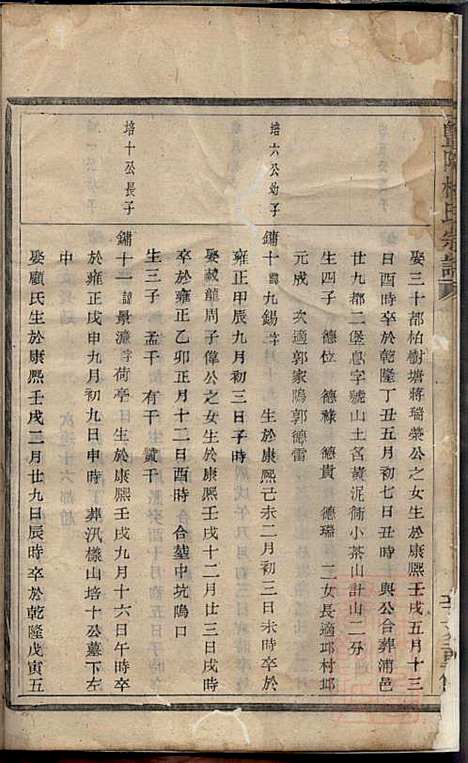 暨陽楊氏宗譜
娶三十都柏樹塘蔣瑞榮公之女生於康熙壬戌五月十三
日酉時卒於乾隆丁丑五月初七日丑時 與公合葬浦邑
廿九都二堡息字號山土名黃泥衕小茶山計山二分
生四子 德位 德祿 德貴 德瑞 二女長適邱村邱
元成 次適郭家塢郭德雷
培六公幼子
鏞十 諱九錫字 生於康熙己未二月初三日未時卒於
雍正甲辰九月初三日子時
娶戴龍周子偉公之女生於康熙壬戌十二月廿三日戌時
卒於雍正乙卯正月十二日酉時 合塟中坑塢口
生三子 孟千 有千 武千
培十公長子
鏞十一 諱景濂字荷亭 生於康熙壬戌九月十六日午時卒
於雍正戊申九月初九日申時 葬汛樣山培十公墓下左
中
娶顧氏生於康熙壬戌二月廿九日辰時卒於乾隆戊寅五